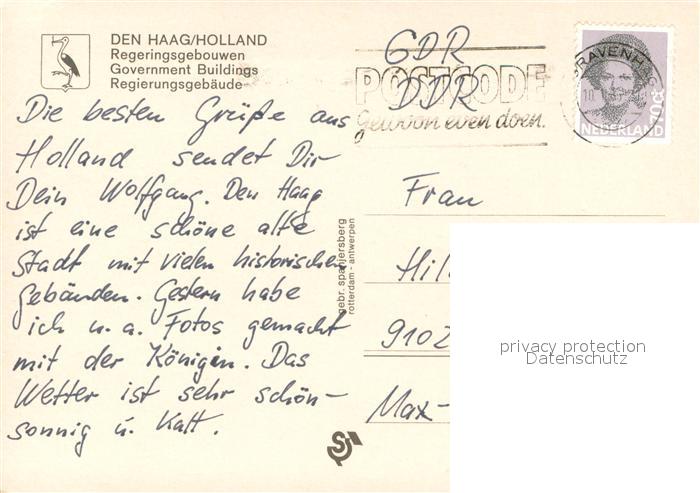 DEN HAAG/HOLLAND
Regeringsgebouwen
Government Buildings
Regierungsgebäude
Die besten Grüße aus
Holland sendet Dir
Dein Wolfgang. Den Haag
ist eine schöne alte
Stadt mit vielen historischen
Gebäuden. Gestern habe
ich u. a. Fotos gemacht
mit der Königin. Das
Wetter ist sehr schön-
sonnig u. Kalt.
gebr. spanjersberg
rotterdam - antwerpen
GDR
DDR
POSTCODE
gewoon even doen.
'S GRAVENHAGE
70c
NEDERLAND
Frau
Hil
9102
Max-
privacy protection
Datenschutz